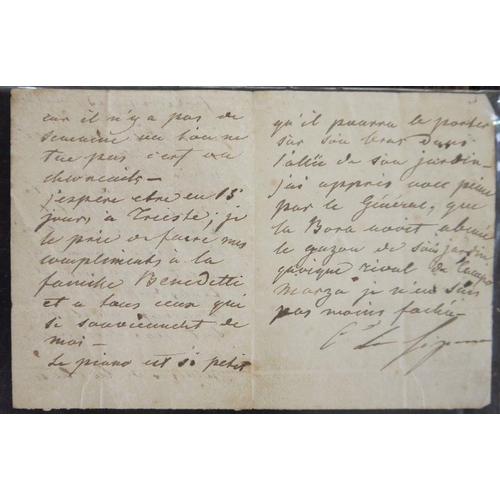 car il n'y a pas de
semaine où l'on ne
tue pas c'est un
j'espère etre en 15
jours, à Trieste; je
te prie de faire mes
compliments à la
famille Benedetti
et à tous ceux qui
se souviennent de
moi —
Le piano est si petit
qu'il pourra le porter
sur son bras dans
l'allée de son jardin —
j'ai appris avec peine
par le Général, que
la Bora avoit abimé
le gazon de son jardin
quoique rival de Campo
Marzo je n'en suis
pas moins faché —